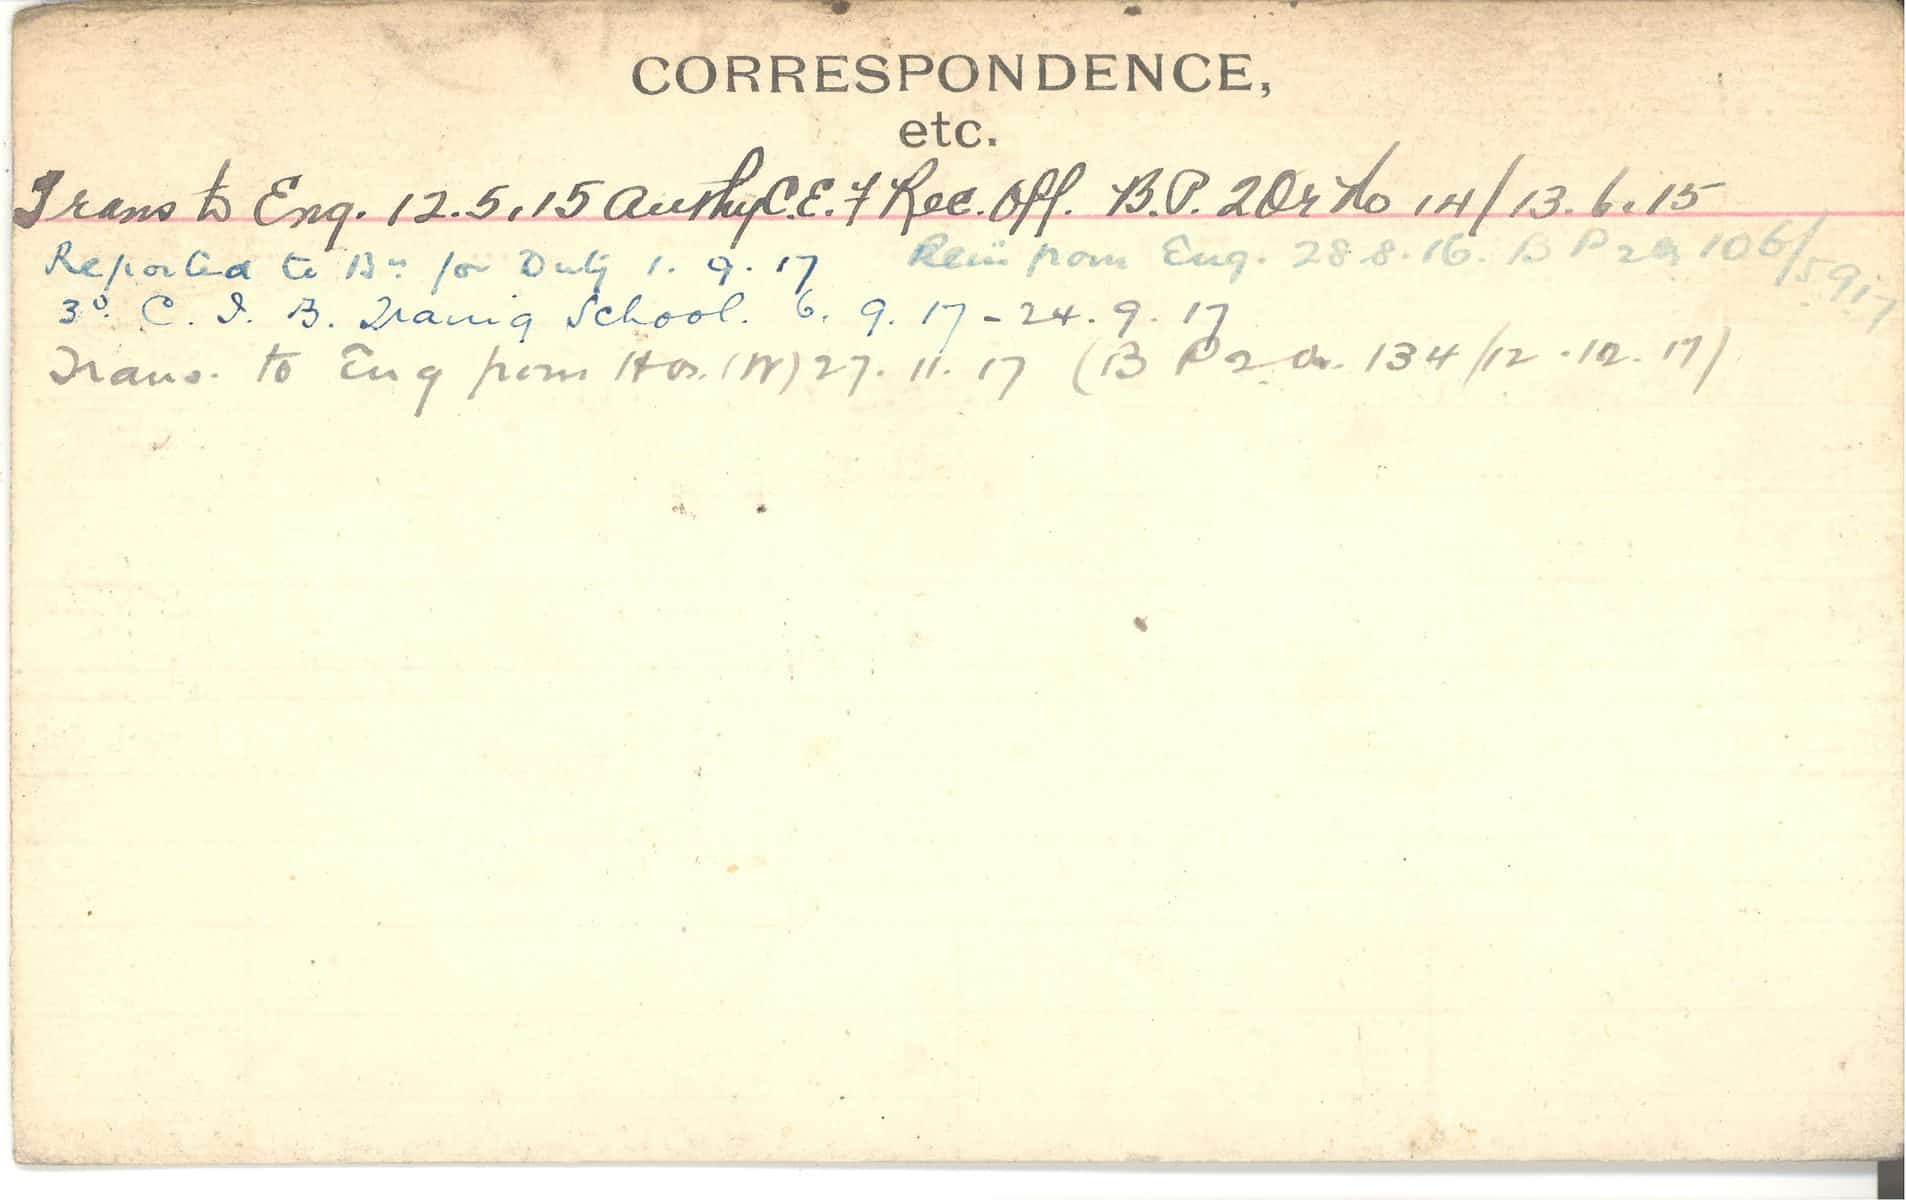 CORRESPONDENCE,
etc.
Trans to Eng. 12.5.15 Authy C.E.F Rec. Off. B.P. 2 Or No 14/13.6.15
Reported to Bn for Duty 1.9.17 Rein from Eng. 28.8.16. B P 2 Or 106/5 9 17
3rd C. I. B. Traing School. 6.9.17 - 24.9.17
Trans. to Eng from Hos. (W) 27.11.17 (B P 2 Or. 134/12.12.17)